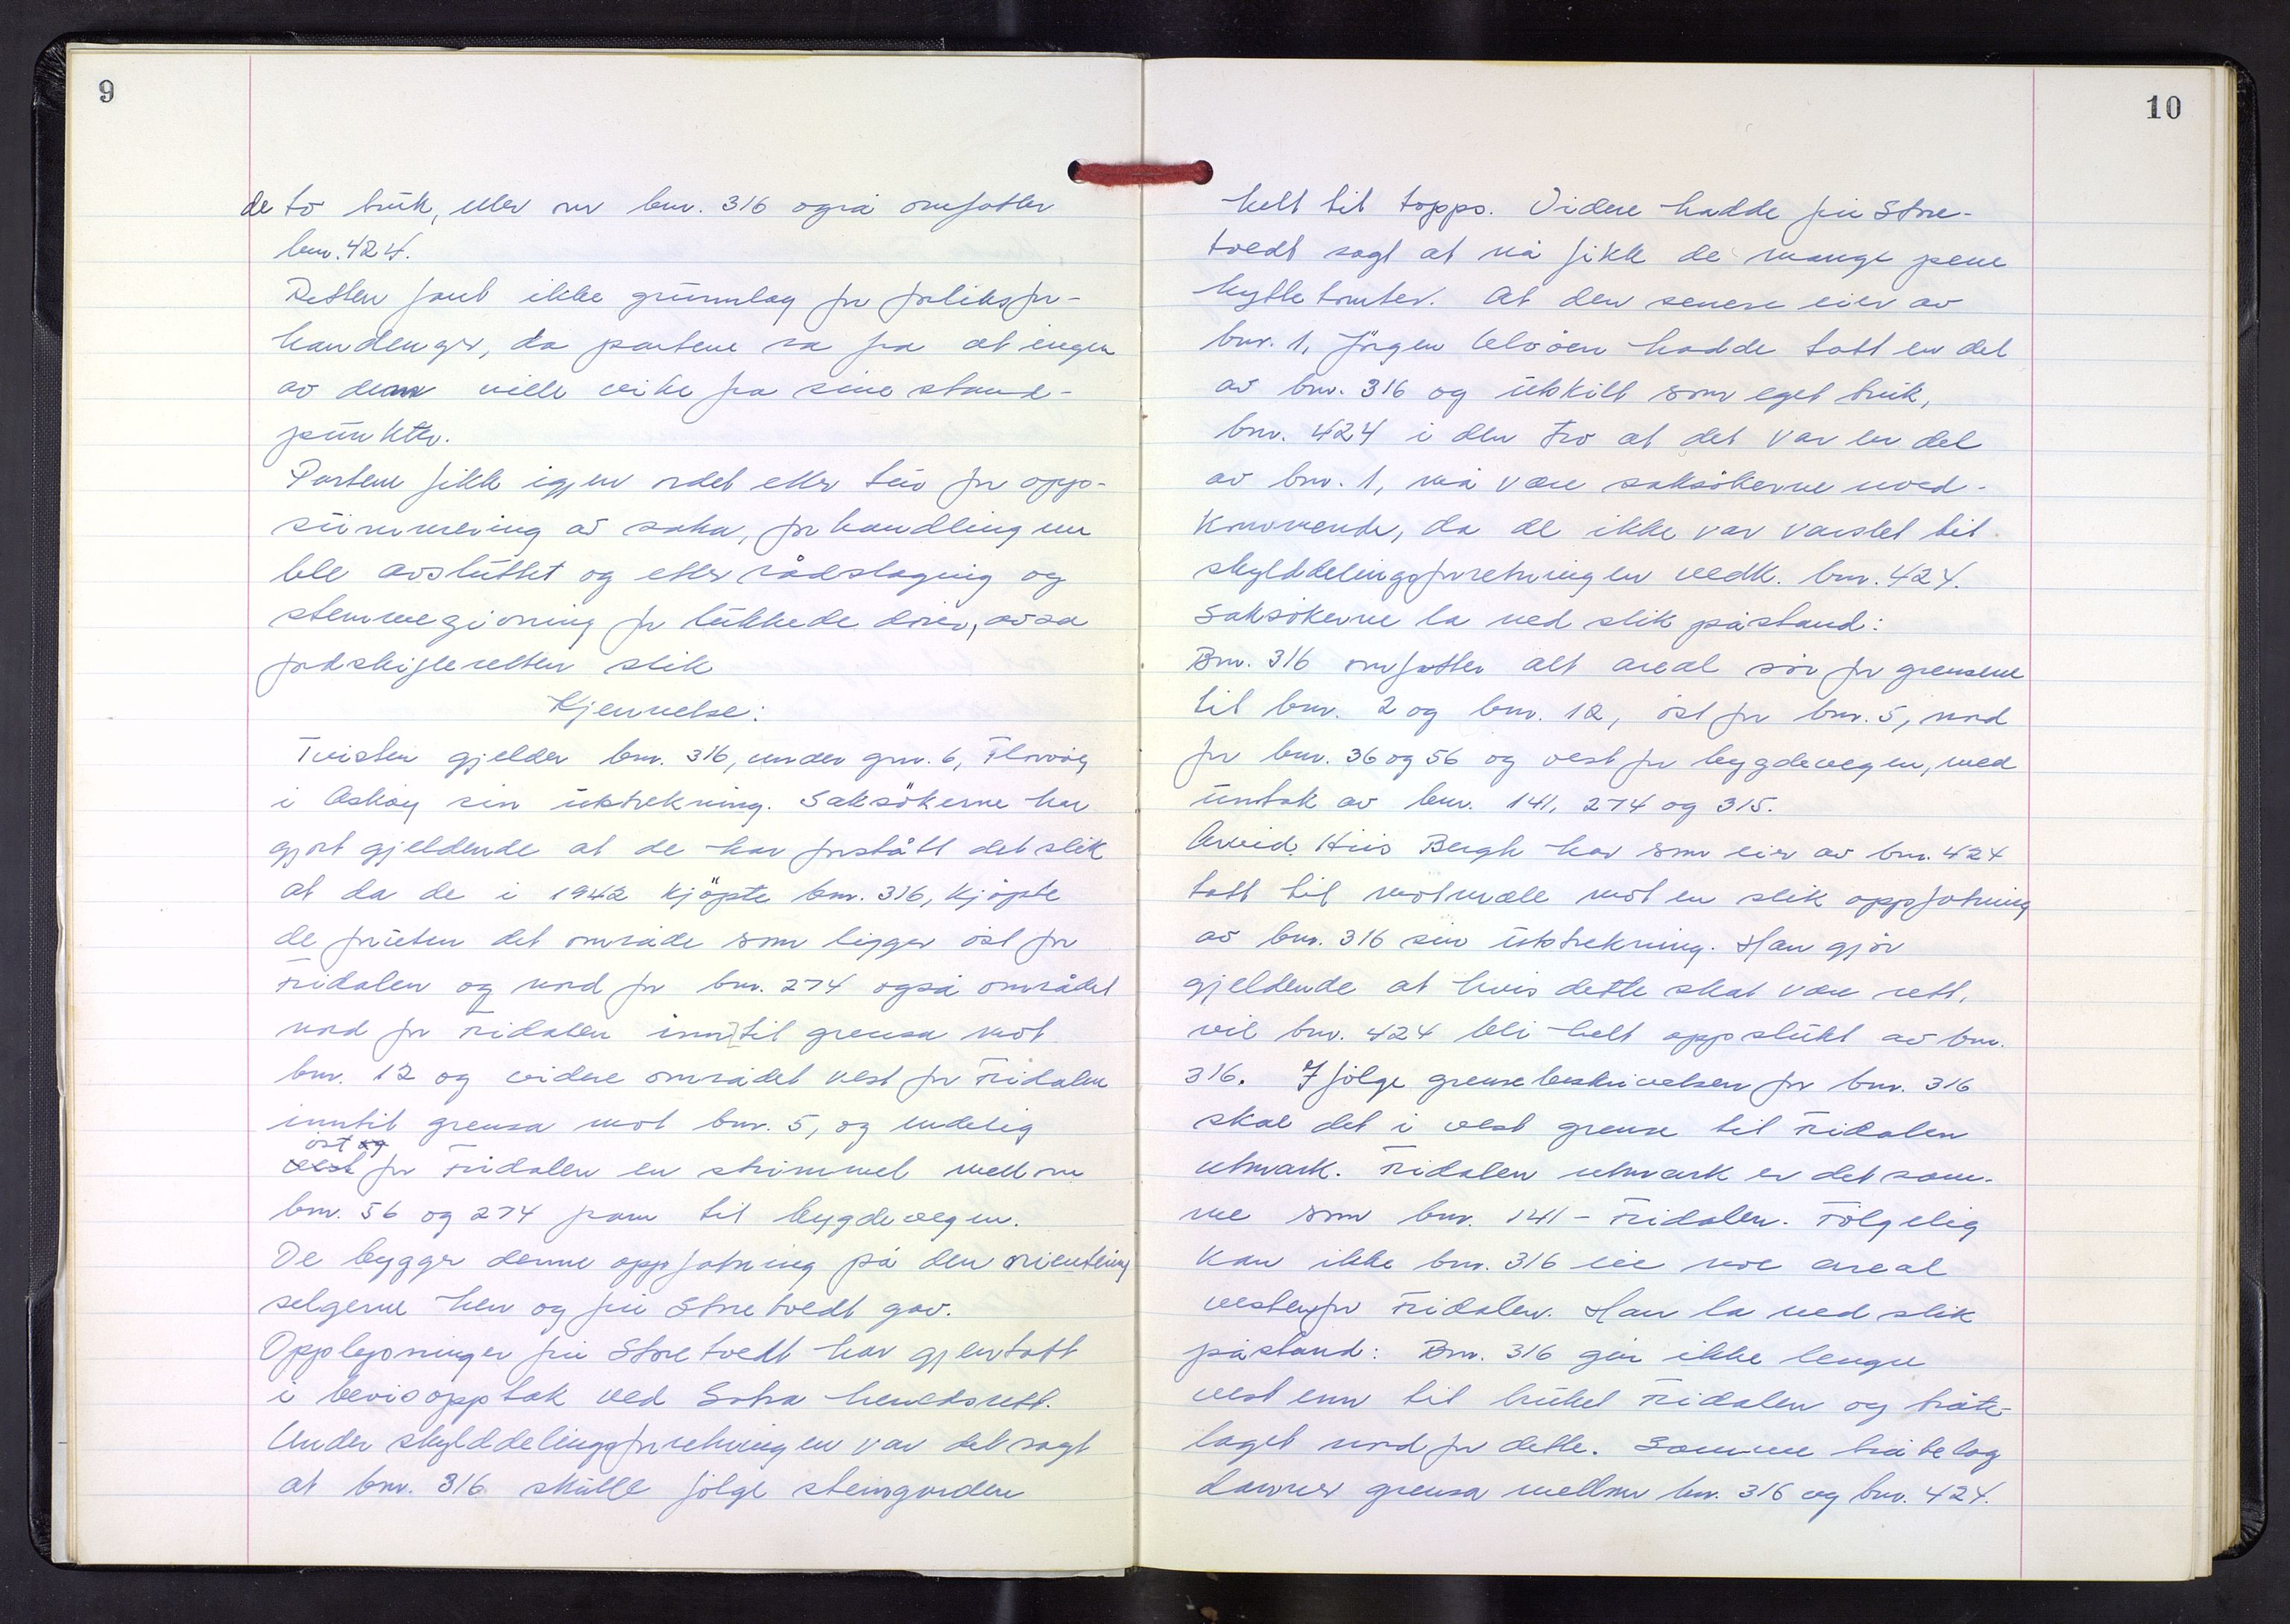 9
de to bruk, eller om bnr. 316 også omfatter
bnr. 424.
Retten fant ikke grunnlag for forliksfor-
handenger, da partene sa fra at ingen
av dem ville vike fra sine stand-
punkter.
Partene fikk igjen ordet etter tur for opp-
summering av saka, forhandlingene
ble avsluttet og etter rådslagning og
stemmegivning for lukkede dører, avsa
jordskifteretten slik
Kjennelse:
Tvisten gjelder bnr. 316, under gnr. 6, Florvåg
i Askøy sin utstrekning. Saksökerne har
gjort gjeldende at de har forstått det slik
at da de i 1942 kjöpte bnr. 316, kjöpte
de foruten det område som ligger öst for
Fridalen og nord for bnr. 274 også området
nord for Fridalen inn til grensa mot
bnr. 12 og videre området vest for Fridalen
inntil grensa mot bnr. 5, og endelig
öst og
vest for Fridalen en strimmel mellom
bnr. 56 og 274 fram til bygdevegen.
De bygger denne oppfatning på den orientering
selgerne herr og fru Storetvedt gav.
Opplysninger fru Storetvedt har gjentatt
i bevisopptak ved Sotra herredsrett.
Under skylddelingsforretningen var det sagt
at bnr. 316 skulle fölge steingarden
10
helt til topps. Videre hadde fru Store-
tvedt sagt at nå fikk de mange pene
hyttetomter. At den senere eier av
bnr. 1, Jörgen Alvöen hadde tatt en del
av bnr. 316 og utskilt som eget bruk,
bnr. 424 i den tro at det var en del
av bnr. 1, må være saksökerne uved-
kommende, da de ikke var varslet til
skylddelingsforretningen vedk. bnr. 424.
Saksökerne la ned slik påstand:
Bnr. 316 omfatter alt areal sör for grensene
til bnr. 2 og bnr. 12, öst for bnr. 5, nord
for bnr. 36 og 56 og vest for bygdevegen, med
unntak av bnr. 141, 274 og 315.
Arvid Hiis Bergh har som eier av bnr. 424
tatt til motmæle mot en slik oppfatning
av bnr. 316 sin utstrekning. Han gjör
gjeldende at hvis dette skal være rett,
vil bnr. 424 bli helt oppslukt av bnr.
316. Ifölge grensebeskrivelsen for bnr. 316
skal det i vest grense til Fridalen
utmark. Fridalen utmark er det sam-
me som bnr. 141 - Fridalen. Fölgelig
kan ikke bnr. 316 eie noe areal
vestenfor Fridalen. Han la ned slik
påstand: Bnr. 316 går ikke lenger
vest enn til bruket Fridalen og bråte-
laget nord for dette. Samme bråtelag
danner grensa mellom bnr. 316 og bnr. 424.